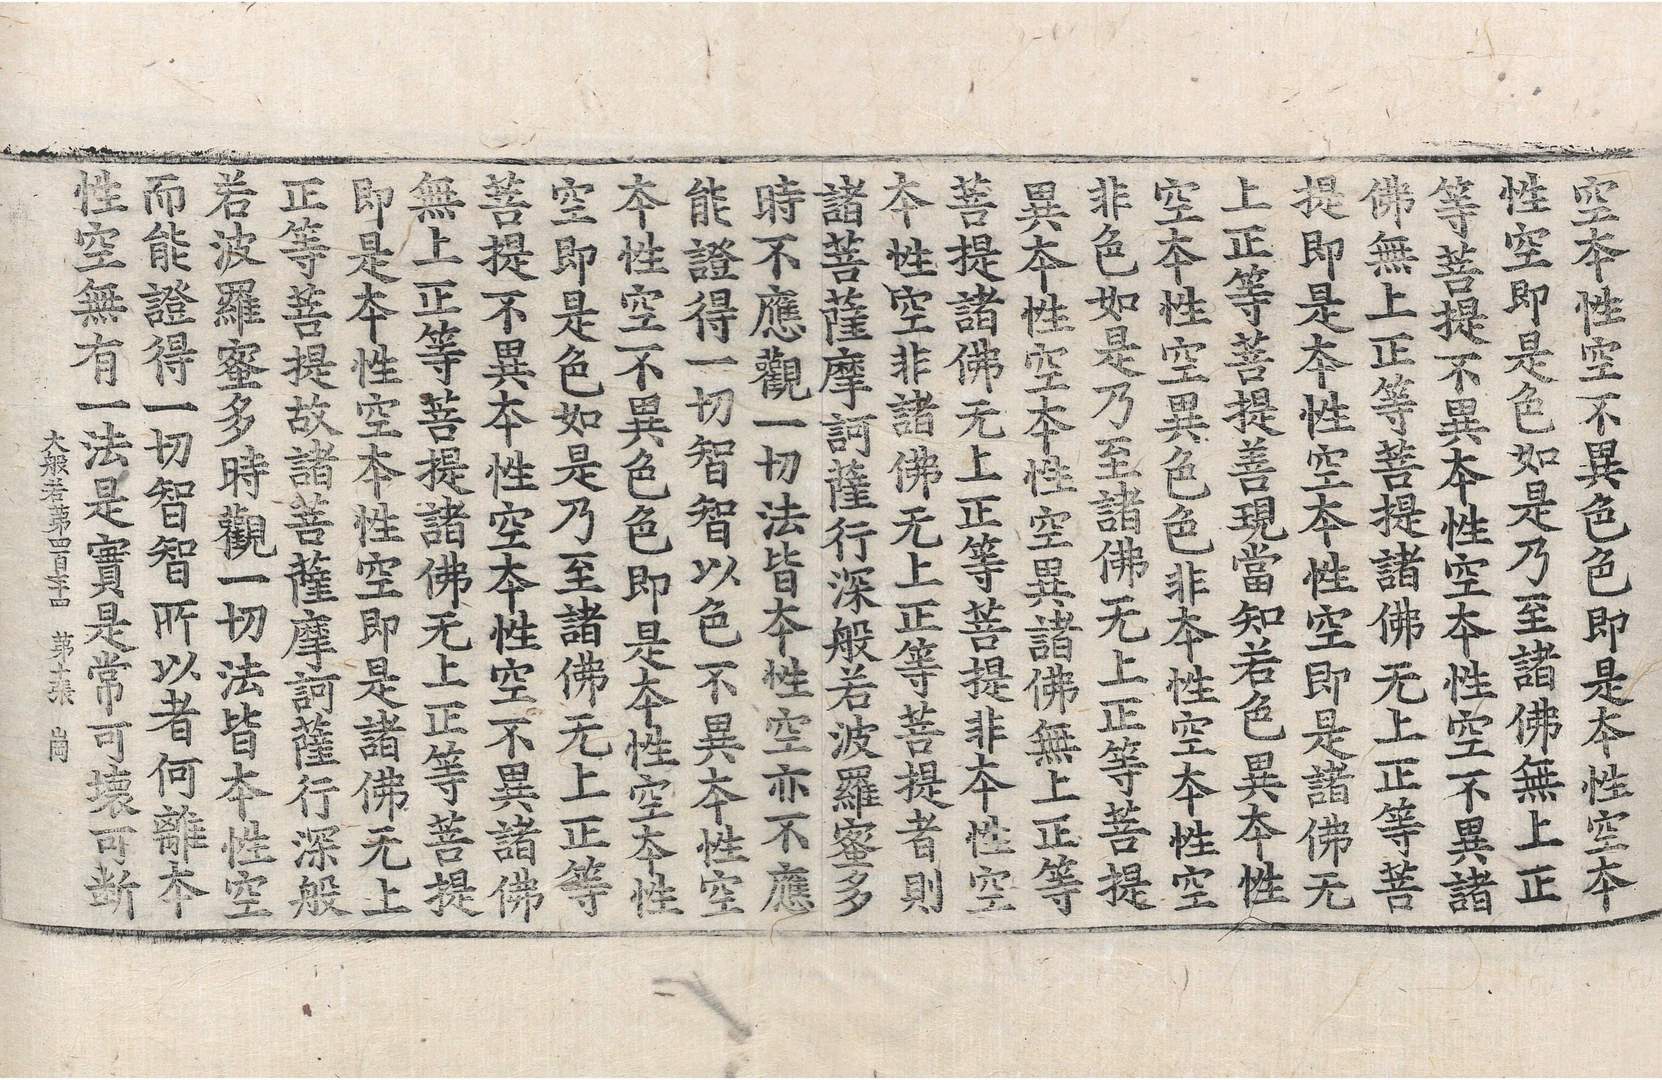 空本性空不異色色即是本性空本
性空即是色如是乃至諸佛無上正
等菩提不異本性空本性空不異諸
佛無上正等菩提諸佛无上正等菩
提即是本性空本性空即是諸佛无
上正等菩提善現當知若色異本性
空本性空異色色非本性空本性空
非色如是乃至諸佛无上正等菩提
異本性空本性空異諸佛無上正等
菩提諸佛无上正等菩提非本性空
本性空非諸佛无上正等菩提者則
諸菩薩摩訶薩行深般若波羅蜜多
時不應觀一切法皆本性空亦不應
能證得一切智智以色不異本性空
本性空不異色色即是本性空本性
空即是色如是乃至諸佛无上正等
菩提不異本性空本性空不異諸佛
無上正等菩提諸佛无上正等菩提
即是本性空本性空即是諸佛无上
正等菩提故諸菩薩摩訶薩行深般
若波羅蜜多時觀一切法皆本性空
而能證得一切智智所以者何離本
性空無有一法是實是常可壞可斷
大般若第四百七十四 第張 崗